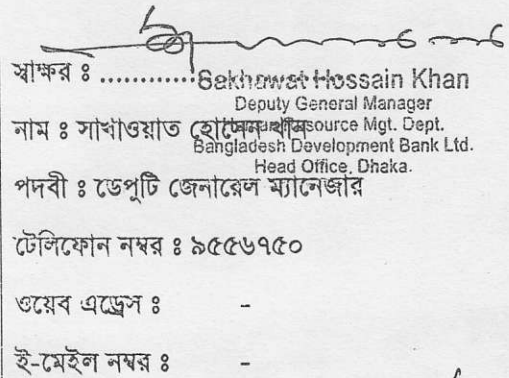 স্বাক্ষর ঃ ..............
Sakhawat Hossain Khan
Deputy General Manager
নাম ঃ সাখাওয়াত হোসেন খান
Human Resource Mgt. Dept.
Bangladesh Development Bank Ltd.
Head Office, Dhaka.
পদবী ঃ ডেপুটি জেনারেল ম্যানেজার
টেলিফোন নম্বর ঃ ৯৫৫৬৭৫০
ওয়েব এড্রেস ঃ -
ই-মেইল নম্বর ঃ -